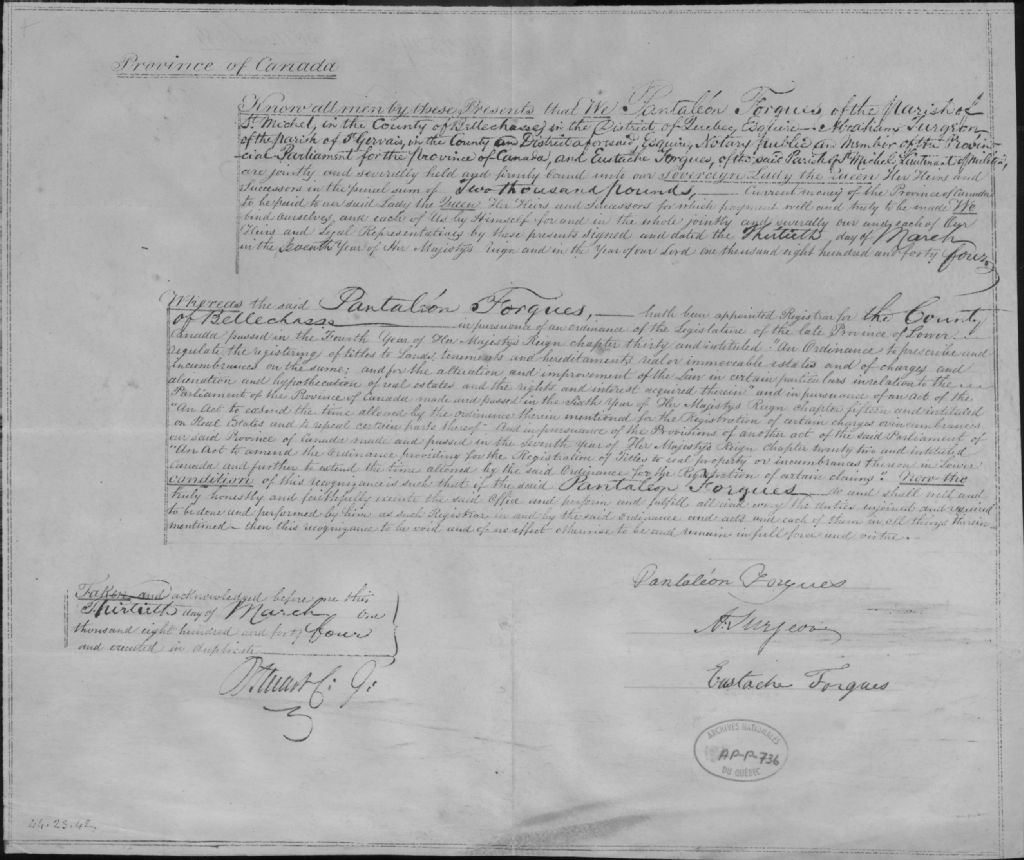 Province of Canada
Know all men by these Presents that We Pantaléon Forgues, of the Parish of
St Michel, in the County of Bellechasse, in the District of Quebec, Esquire – Abraham Turgeon,
of the Parish of St Gervais, in the County an District aforesaid, Esquire, Notary public an Member of the Provin-
cial Parliament for the Province of Canada, and Eustache Forgues, of the said Parish of St Michel, Lieutenant of Militia,
are jointly and severally held and firmly bound unto our Sovereign Lady the Queen Her Heirs and
Successors in the penal sum of Two thousand pounds, Current money of the Province of Canada
to be paid to our said Lady the Queen Her Heirs and Successors for which payment well and truly to be made We
bind ourselves, and each of Us by Himself for and in the whole jointly and severally our and each of Our
Heirs and Legal Representatives by these presents signed and dated the Thirtieth day of March
in the Seventh Year of Her Majesty's Reign and in the Year of our Lord one thousand eight hundred and forty four.
Whereas the said Pantaléon Forgues, hath been appointed Registrar for the County
of Bellechasse in pursuance of an ordinance of the Legislature of the late Province of Lower
Canada passed in the Fourth Year of Her Majesty's Reign chapter thirty and intituled "An Ordinance to prescribe and
regulate the registering of titles to Lands, tenements and hereditaments real or immoveable estates and of charges and
incumbrances on the same; and for the alteration and improvement of the Law in certain particulars in relation to the
alienation and hypothecation of real estates and the rights and interest acquired therein" and in pursuance of an act of the
Parliament of the Province of Canada made and passed in the Sixth Year of Her Majesty's Reign chapter fifteen and intituled
"An Act to extend the time allowed by the ordinance therein mentioned for the Registration of certain charges or incumbrances
on Real Estates and to repeal certain parts thereof" And in pursuance of the Provisions of another act of the said Parliament of
our said Province of Canada made and passed in the Seventh year of Her Majesty's Reign chapter twenty two and intituled
"An Act to amend the Ordinance providing for the Registration of Titles to real property or incumbrances thereon in Lower
Canada and further to extend the time allowed by the said Ordinance for the Registration of certain claims": Now the
condition of this recognizance is such that if the said Pantaléon Forgues do and shall well and
truly honestly and faithfully execute the said Office and perform and fulfill all and every the duties enjoined and required
to be done and performed by him as such Registrar in and by the said ordinance and acts and each of them in all things therein
mentioned – then this recognizance to be void and of no effect otherwise to be and remain in full force and virtue.
Taken and acknowledged before me this
Thirtieth day of March one
thousand eight hundred and forty four
and executed in duplicate
Stuart C: J:
Pantaléon Forgues
A. Turgeon
Eustache Forgues
ARCHIVES NATIONALES
AP-P-736
DU QUÉBEC